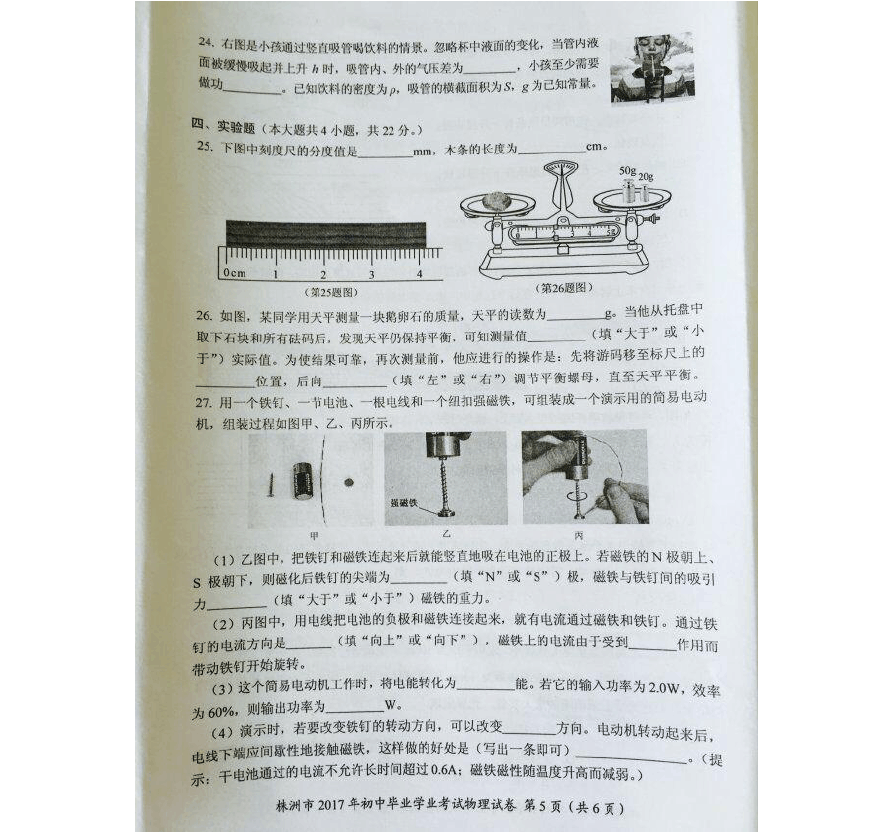 24. 右图是小孩通过竖直吸管喝饮料的情景。忽略杯中液面的变化，当管内液
面被缓慢吸起并上升 h 时，吸管内、外的气压差为________，小孩至少需要
做功________。已知饮料的密度为ρ，吸管的横截面积为S，g 为已知常量。
四、实验题（本大题共4小题，共22分。）
25. 下图中刻度尺的分度值是________mm，木条的长度为________cm。
50g 20g
0 1 2 3 4 5g
0cm 1 2 3 4
（第25题图）
（第26题图）
26. 如图，某同学用天平测量一块鹅卵石的质量，天平的读数为________g。当他从托盘中
取下石块和所有砝码后，发现天平仍保持平衡，可知测量值________（填“大于”或“小
于”）实际值。为使结果可靠，再次测量前，他应进行的操作是：先将游码移至标尺上的
________位置，后向________（填“左”或“右”）调节平衡螺母，直至天平平衡。
27. 用一个铁钉、一节电池、一根电线和一个纽扣强磁铁，可组装成一个演示用的简易电动
机，组装过程如图甲、乙、丙所示。
强磁铁
甲 乙 丙
（1）乙图中，把铁钉和磁铁连起来后就能竖直地吸在电池的正极上。若磁铁的N 极朝上、
S 极朝下，则磁化后铁钉的尖端为________（填“N”或“S”）极，磁铁与铁钉间的吸引
力________（填“大于”或“小于”）磁铁的重力。
（2）丙图中，用电线把电池的负极和磁铁连接起来，就有电流通过磁铁和铁钉。通过铁
钉的电流方向是______（填“向上”或“向下”），磁铁上的电流由于受到______作用而
带动铁钉开始旋转。
（3）这个简易电动机工作时，将电能转化为________能。若它的输入功率为2.0W，效率
为60%，则输出功率为________W。
（4）演示时，若要改变铁钉的转动方向，可以改变_______方向。电动机转动起来后，
电线下端应间歇性地接触磁铁，这样做的好处是（写出一条即可）________________。（提
示：干电池通过的电流不允许长时间超过0.6A；磁铁磁性随温度升高而减弱。）
株洲市2017年初中毕业学业考试物理试卷 第5页（共6页）